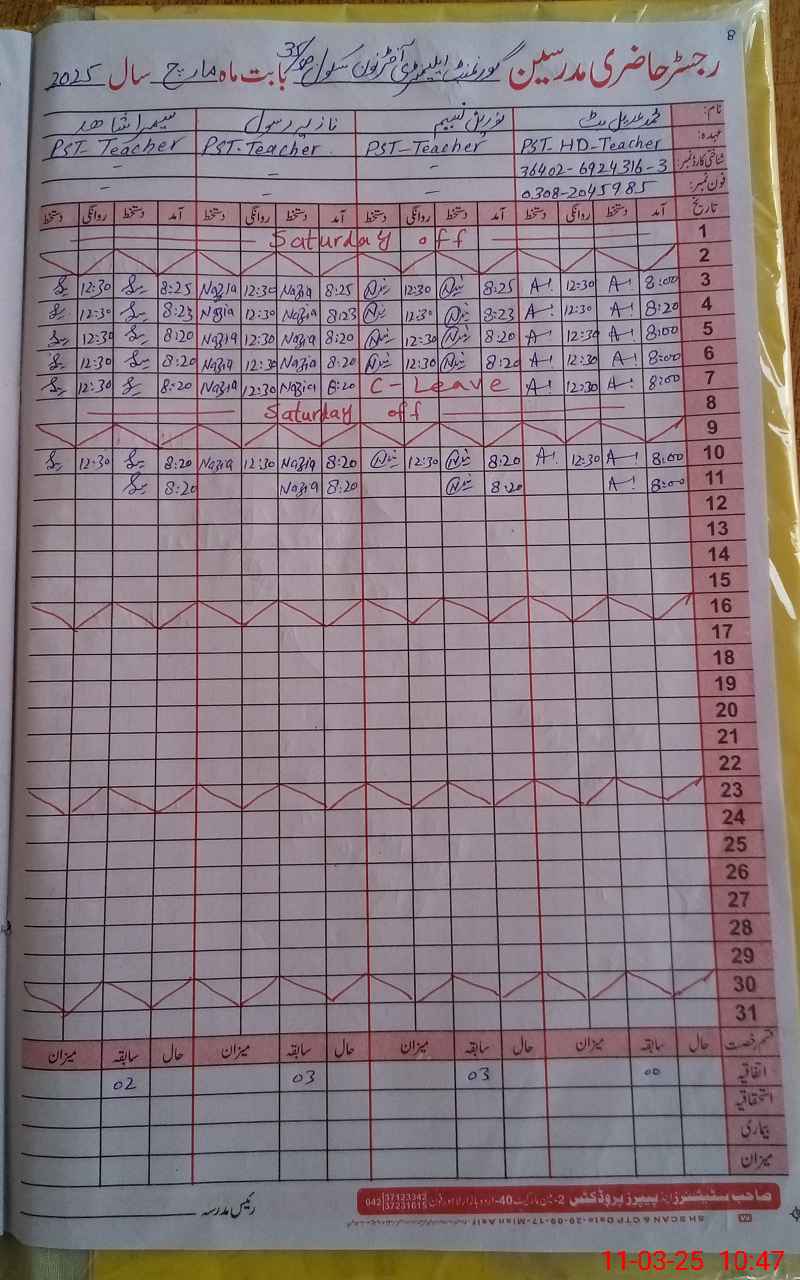 8
رجسٹر حاضری مدرسین گورنمنٹ ایلیمنٹری آفٹرنون سکول 35 بابت ماہ مارچ سال 2025
نام: نورین نسیم نازیہ رسول سمیرا شاھد
عہدہ: PST-HD-Teacher PST-Teacher PST-Teacher PST-Teacher
شناختی کارڈ نمبر: 36402-6924316-3 - - -
فون نمبر: 0308-2045985 - - -
تاریخ آمد دستخط روانگی دستخط آمد دستخط روانگی دستخط آمد دستخط روانگی دستخط آمد دستخط روانگی دستخط
1 Saturday off
2
3 8:00 12:30 8:25 12:30 8:25 Nazia 12:30 Nazia 8:25 12:30
4 8:20 12:30 8:23 12:30 8:23 Nazia 12:30 Nazia 8:23 12:30
5 8:00 12:30 8:20 12:30 8:20 Nazia 12:30 Nazia 8:20 12:30
6 8:00 12:30 8:20 12:30 8:20 Nazia 12:30 Nazia 8:20 12:30
7 8:00 12:30 C-Leave 8:20 Nazia 12:30 Nazia 8:20 12:30
8 Saturday off
9
10 8:00 12:30 8:20 12:30 8:20 Nazia 12:30 Nazia 8:20 12:30
11 8:00 8:20 8:20 Nazia 8:20
12
13
14
15
16
17
18
19
20
21
22
23
24
25
26
27
28
29
30
31
قسم رخصت حال سابقہ میزان حال سابقہ میزان حال سابقہ میزان حال سابقہ میزان
اتفاقیہ 00 03 03 02
استحقاقیہ
بیماری
میزان
صاحب سٹیشنرز اینڈ پیپرز پروڈکٹس 042 37123342 37231615
رئیس مدرسہ
11-03-25 10:47